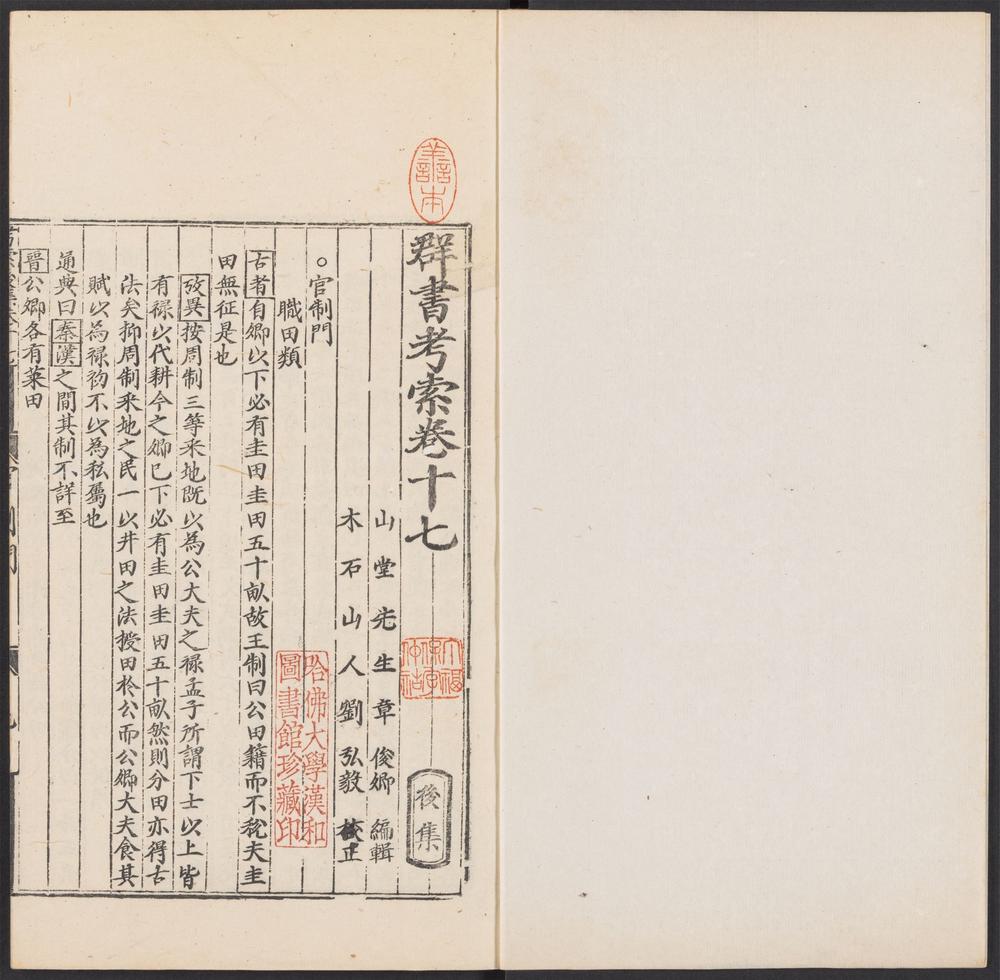 善本
群書考索卷十七
後集
山堂先生章俊卿編輯
木石山人劉弘毅校正
哈佛大學漢和
圖書館珍藏印
○官制門
職田類
古者自卿以下必有圭田圭田五十畝故王制曰公田籍而不稅夫圭
田無征是也
攷異按周制三等采地既以為公大夫之祿孟子所謂下士以上皆
有祿以代耕今之卿已下必有圭田圭田五十畝然則分田亦得古
法矣抑周制采地之民一以井田之法授田於公而公卿大夫食其
賦以為祿初不以為私屬也
通典曰秦漢之間其制不詳至
晉公卿各有菜田